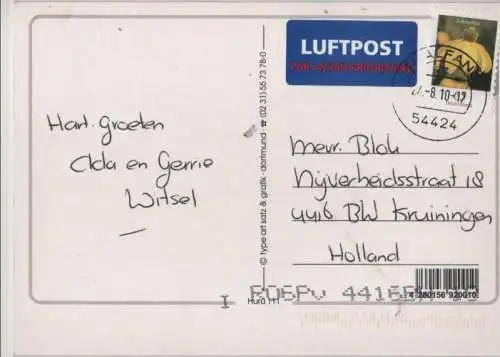 LUFTPOST
PAR AVION/PRIORITAIRE
54424
Hart. Groeten
Alda en Gerrie
Witsel
Mevr. Blok
Nijverheidsstraat 18
4416 BW Kruiningen
Holland
© type art satz & grafik · dortmund · ☎ (02 31) 55 73 78-0
4 280156 920010